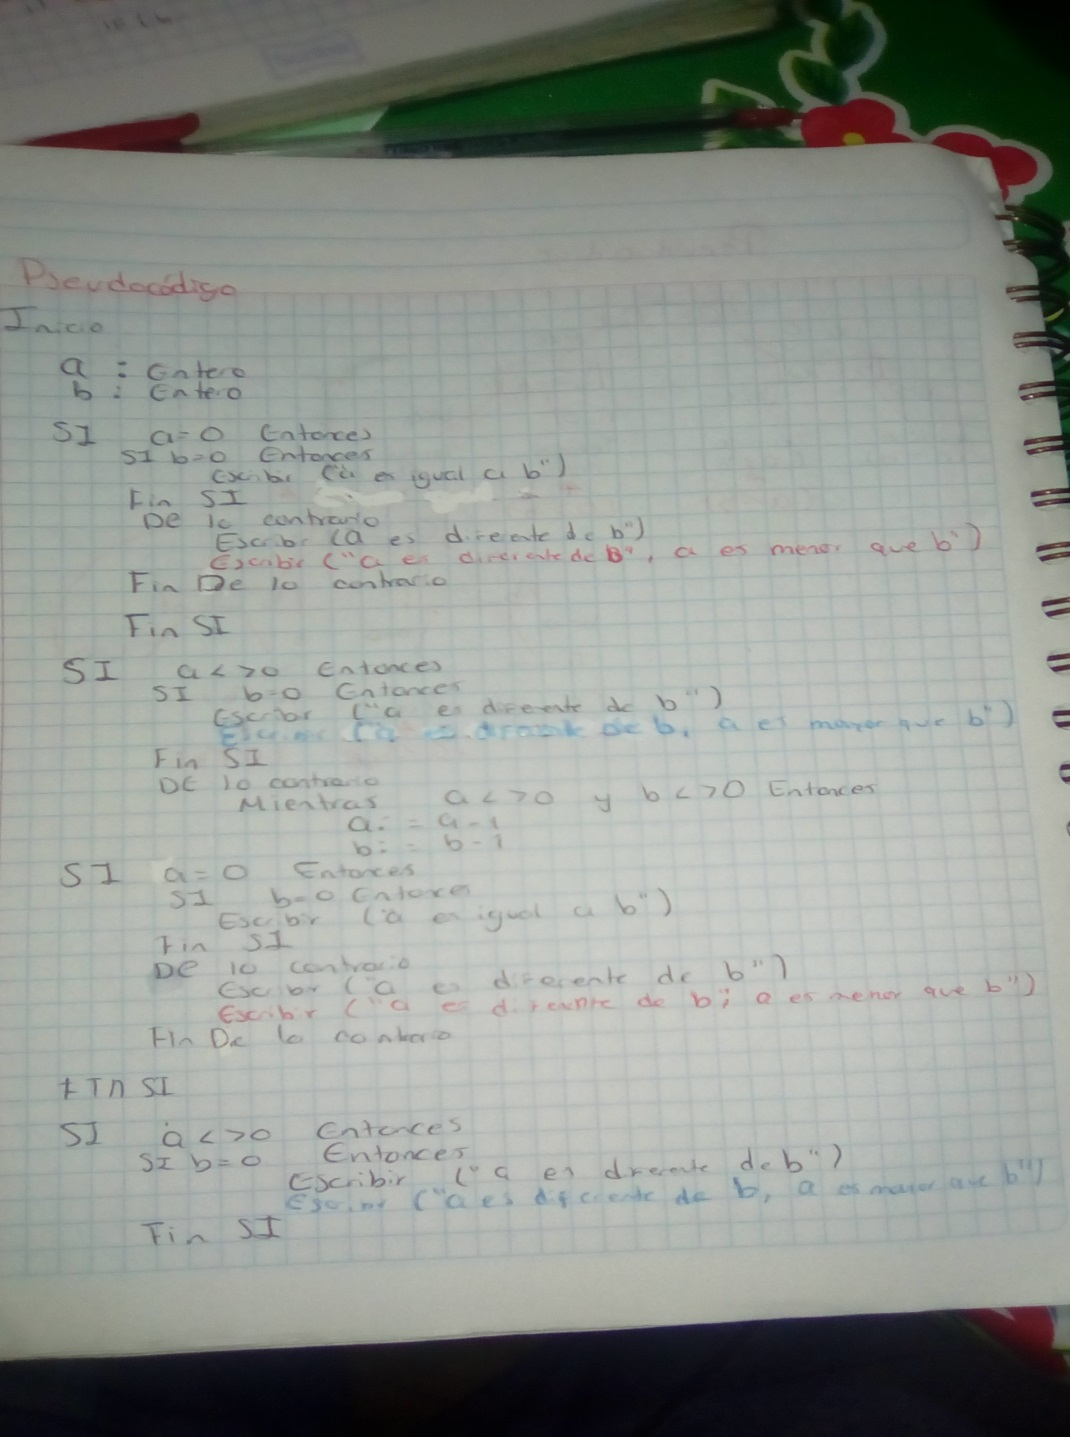 Pseudocódigo
Inicio
a : Entero
b : Entero
SI a=0 Entonces
SI b=0 Entonces
Escribir ("a es igual a b")
Fin SI
De lo contrario
Escribir (a es diferente de b")
Escribir ("a es diferente de B", a es menor que b")
Fin De lo contrario
Fin SI
SI a<>0 Entonces
SI b=0 Entonces
Escribir ("a es diferente de b")
de b, a es mayor que b")
Fin SI
DE lo contrario
Mientras a<>0 y b<>0 Entonces
a:= a-1
b:= b-1
SI a=0 Entonces
SI b=0 Entonces
Escribir ("a es igual a b")
Fin SI
De lo contrario
Escribir ("a es diferente de b")
Escribir ("a es diferente de b; a es menor que b")
Fin De lo contrario
FIn SI
SI a<>0 Entonces
SI b=0 Entonces
Escribir ("a es diferente de b")
Escribir ("a es diferente de b, a es mayor que b")
Fin SI